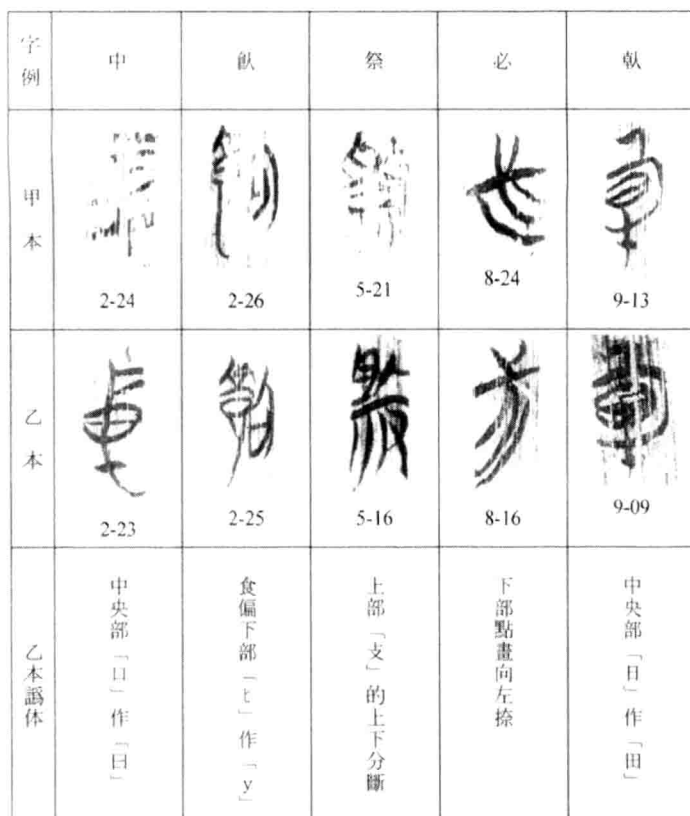 字例 中 飤 祭 必 倝
甲本
2-24 2-26 5-21 8-24 9-13
乙本
2-23 2-25 5-16 8-16 9-09
乙本譌体
中央部「口」作「日」
食偏下部「匕」作「y」
上部「支」的上下分斷
下部點畫向左捺
中央部「日」作「田」